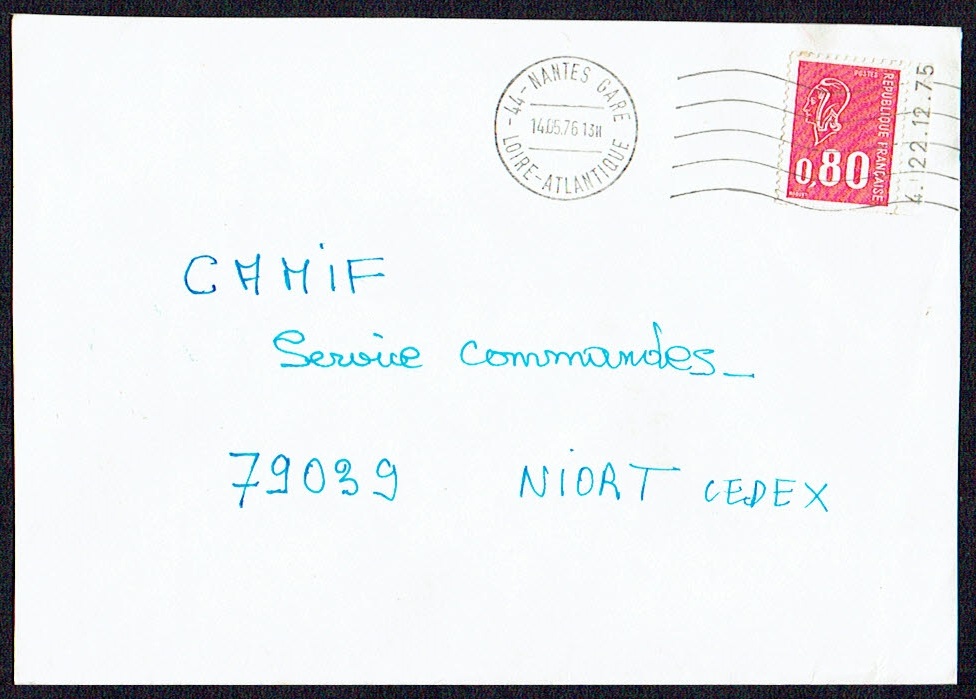 -44-NANTES GARE
14.05.76 13H
LOIRE-ATLANTIQUE
POSTES
REPUBLIQUE FRANÇAISE
0,80
4. 22.12.75
CAMIF
Service commandes_
79039 NIORT CEDEX